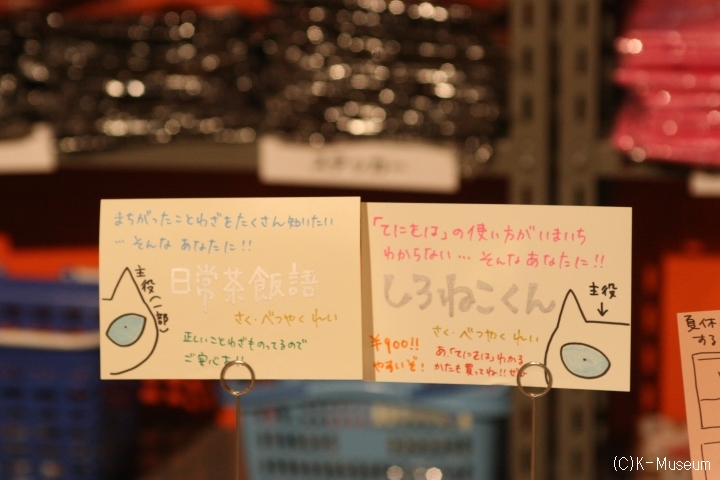 まちがったことわざをたくさん知りたい
… そんな あなたに!!
日常茶飯語
主役(一部)
さく・べつやく れい
正しいことわざものってるので
ご安心を!!
「てにをは」の使い方がいまいち
わからない … そんな あなたに!!
しろねこくん
主役
さく・べつやく れい
¥900!!
やすいぞ!
あ、「てにをは」わかる
かたも買ってね!!
夏休
する
(C)K-Museum